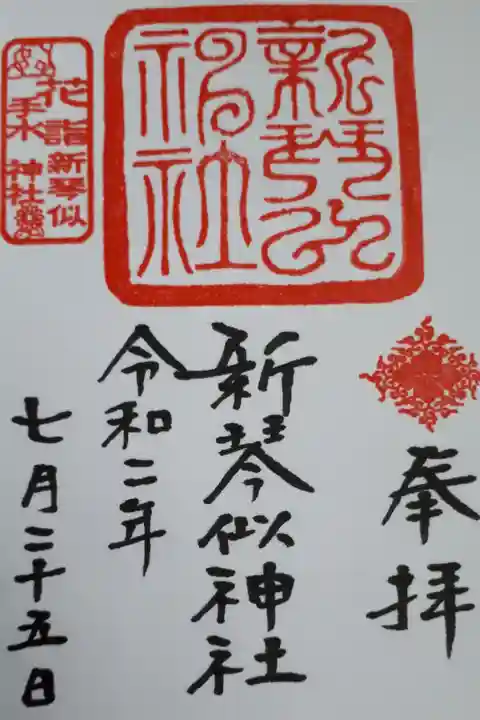 奉拝
新琴似神社
令和二年
七月二十五日
新琴似
神社
花詣
手水
新琴似
神社